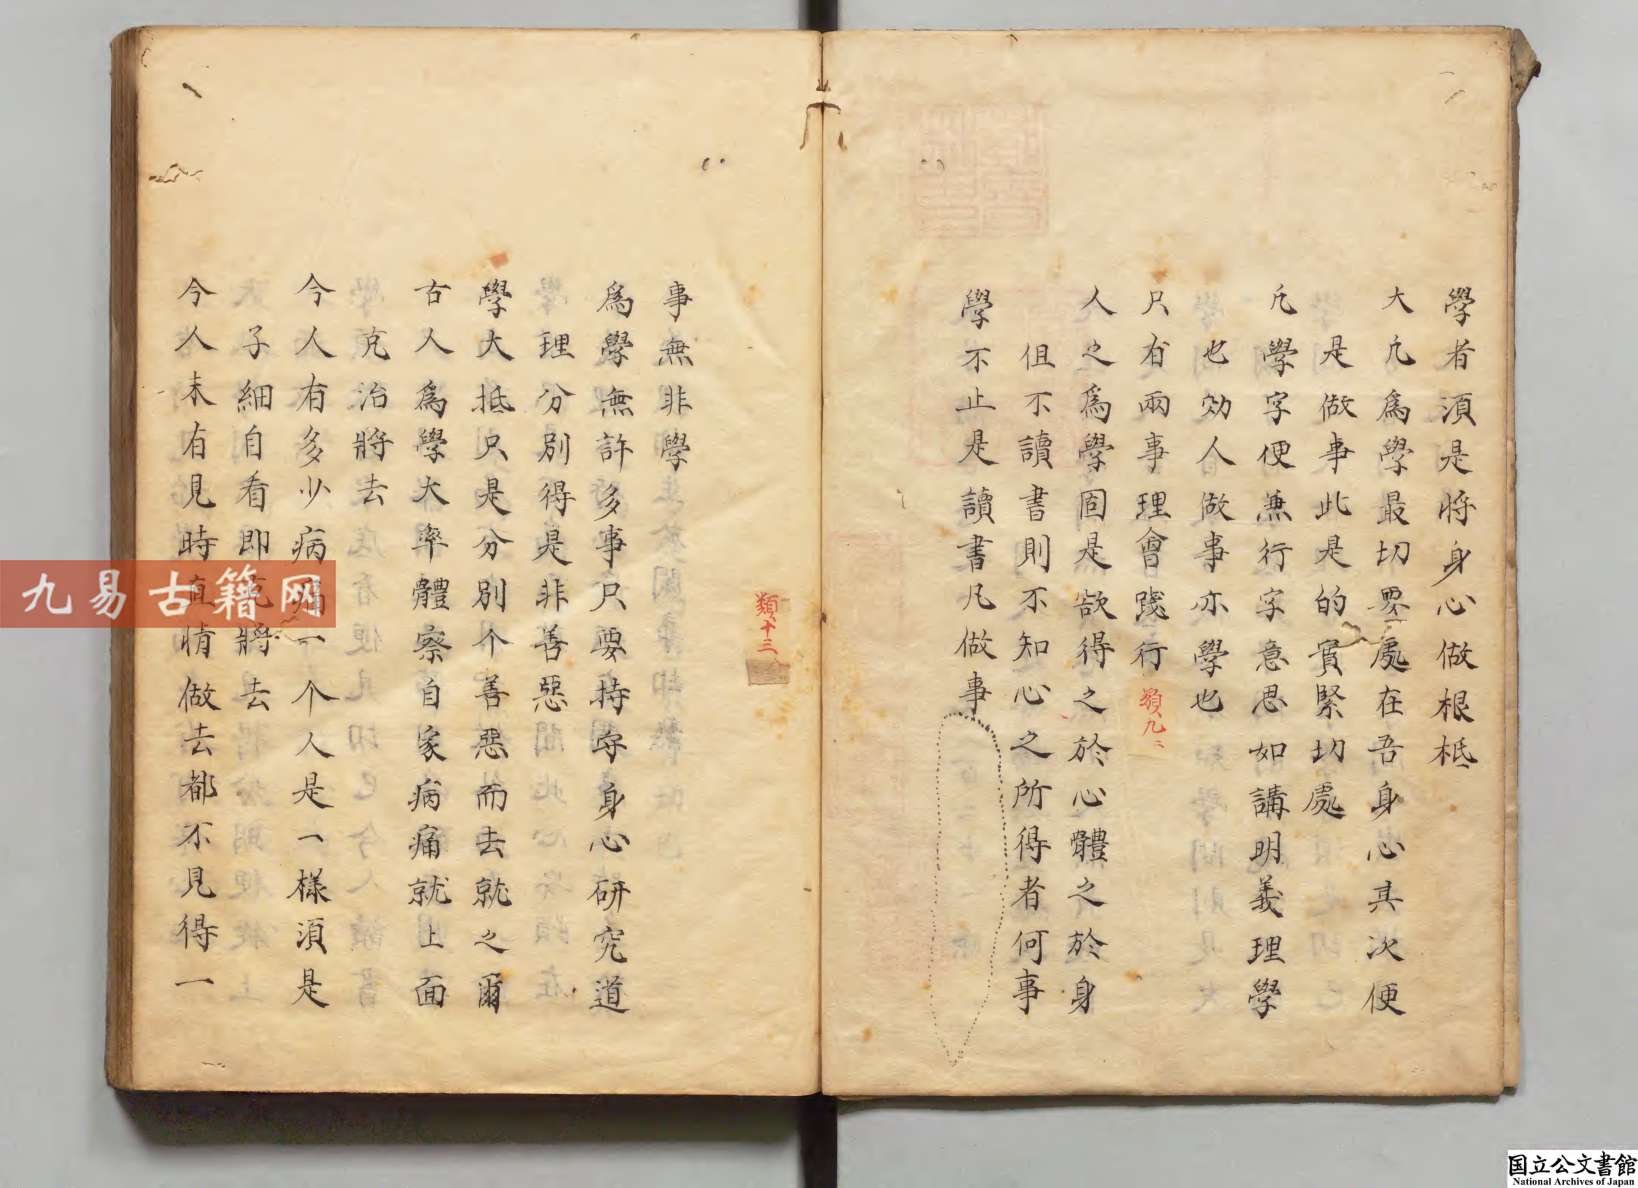 學者須是將身心做根柢
大凡爲學最切要處在吾身心其次便
是做事此是的實緊切處
凡學字便兼行字意思如講明義理學
也效人做事亦學也
只有兩事理會踐行
類九
人之爲學固是欲得之於心體之於身
但不讀書則不知心之所得者何事
學不止是讀書凡做事
類十三
事無非學
爲學無許多事只要持守身心研究道
理分別得是非善惡
學大抵只是分別个善惡而去就之爾
古人爲學大率體察自家病痛就上面
克治將去
今人有多少病痛一个人是一樣須是
子細自看即克將去
今人未有見時直情做去都不見得一
九易古籍网
国立公文書館
National Archives of Japan